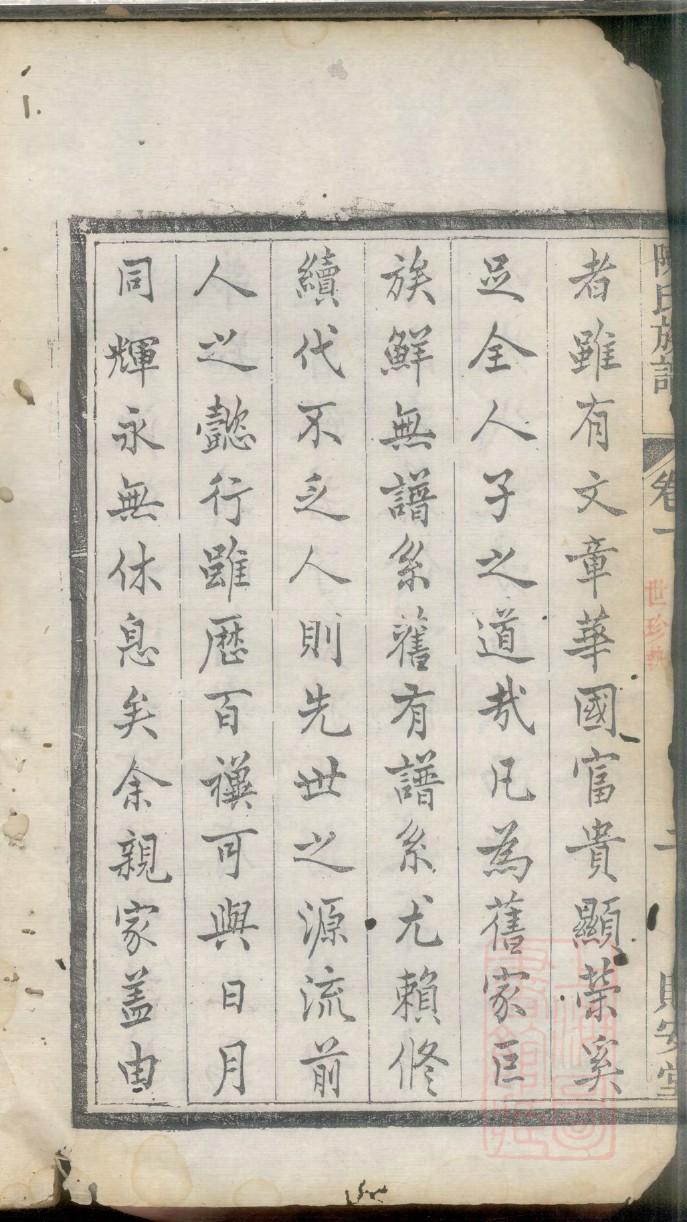 陳氏族譜 卷一 二 則安堂
世珍藝
者雖有文章華國富貴顯榮奚
足全人子之道哉凡為舊家巨
族鮮無譜系舊有譜系尤賴修
續代不乏人則先世之源流前
人之懿行雖歷百禩可與日月
同輝永無休息矣余親家蓋由